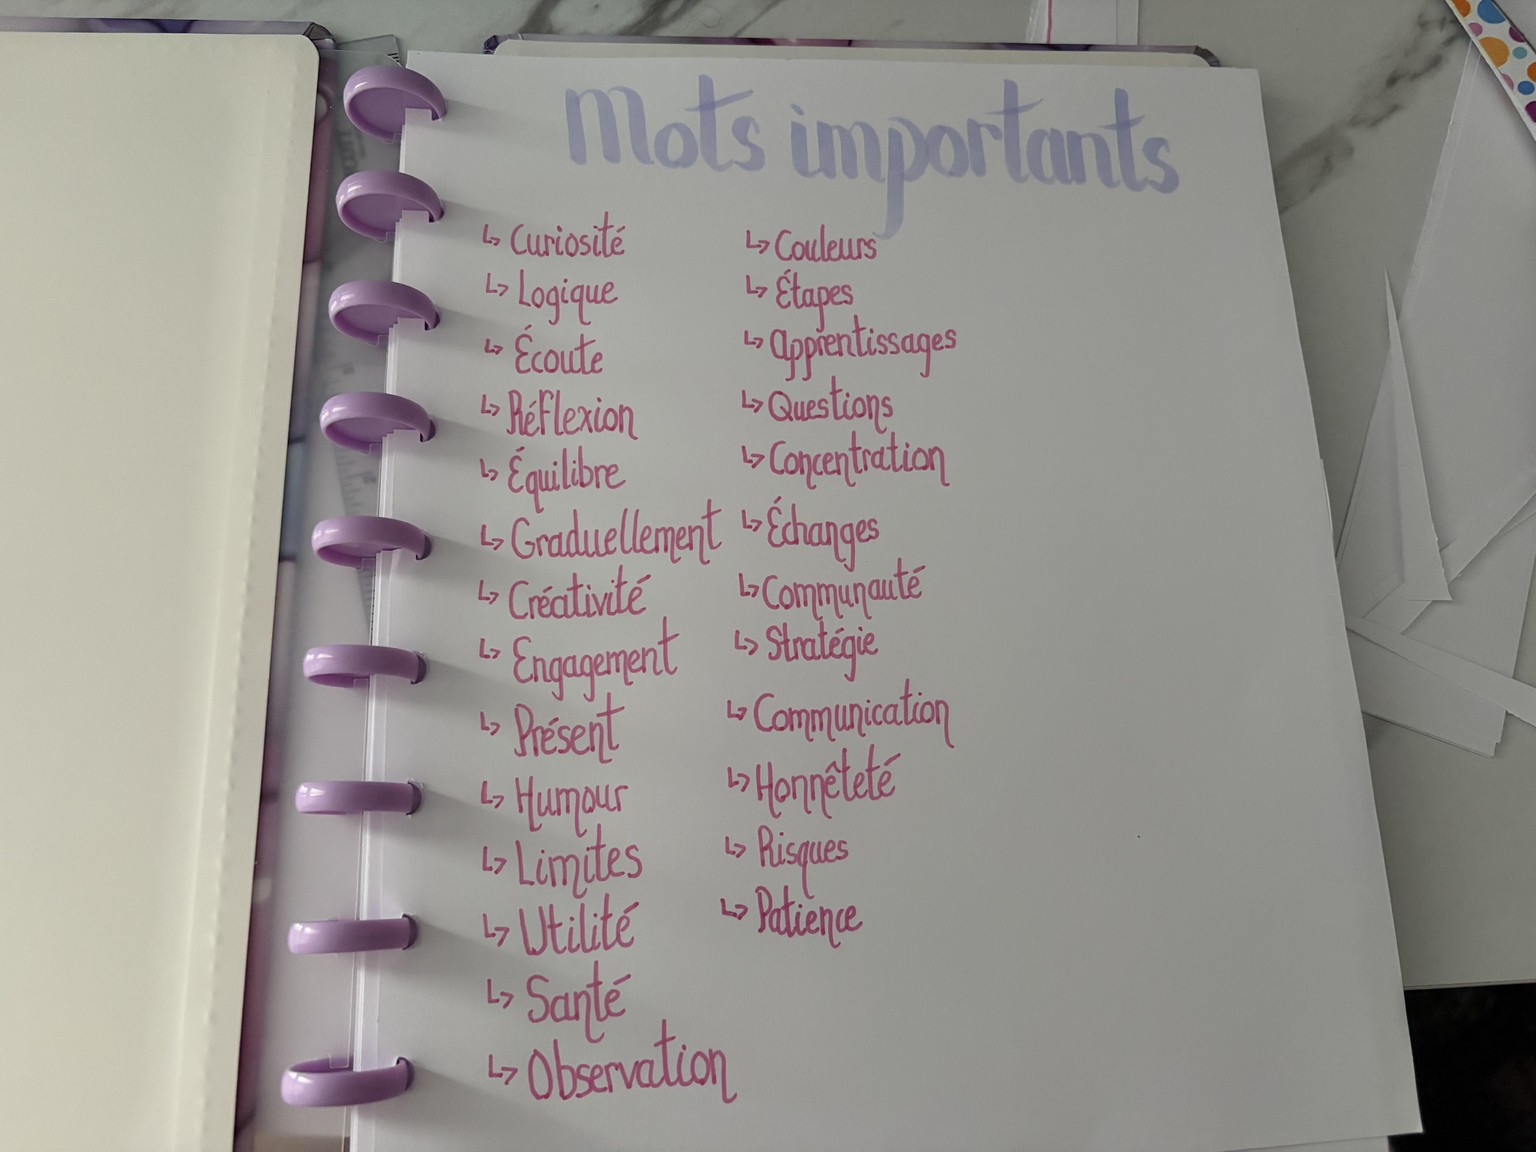 Mots importants
↳ Curiosité
↳ Logique
↳ Écoute
↳ Réflexion
↳ Équilibre
↳ Graduellement
↳ Créativité
↳ Engagement
↳ Présent
↳ Humour
↳ Limites
↳ Utilité
↳ Santé
↳ Observation
↳ Couleurs
↳ Étapes
↳ Apprentissages
↳ Questions
↳ Concentration
↳ Échanges
↳ Communauté
↳ Stratégie
↳ Communication
↳ Honnêteté
↳ Risques
↳ Patience